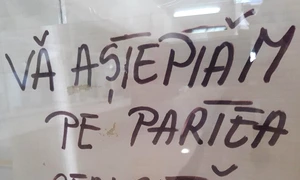 VĂ AȘTEPTĂM
PE PARTEA